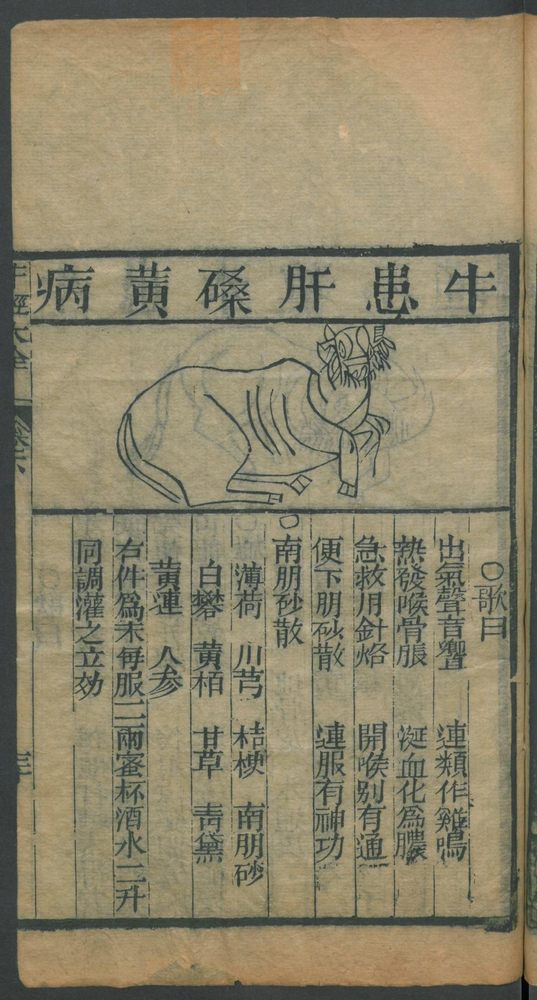 牛患肝磉黄病
○歌曰
出氣聲音響　連類作雞鳴
熱發喉骨脹　涎血化爲膿
急救用針烙　開喉别有通
便下朋砂散　連服有神功
○南朋砂散
薄荷　川芎　桔梗　南朋砂
白礬　黄栢　甘草　青黛
黄連　人參
右件爲末每服二兩蜜杯酒水二升
同調灌之立効
牛經大全